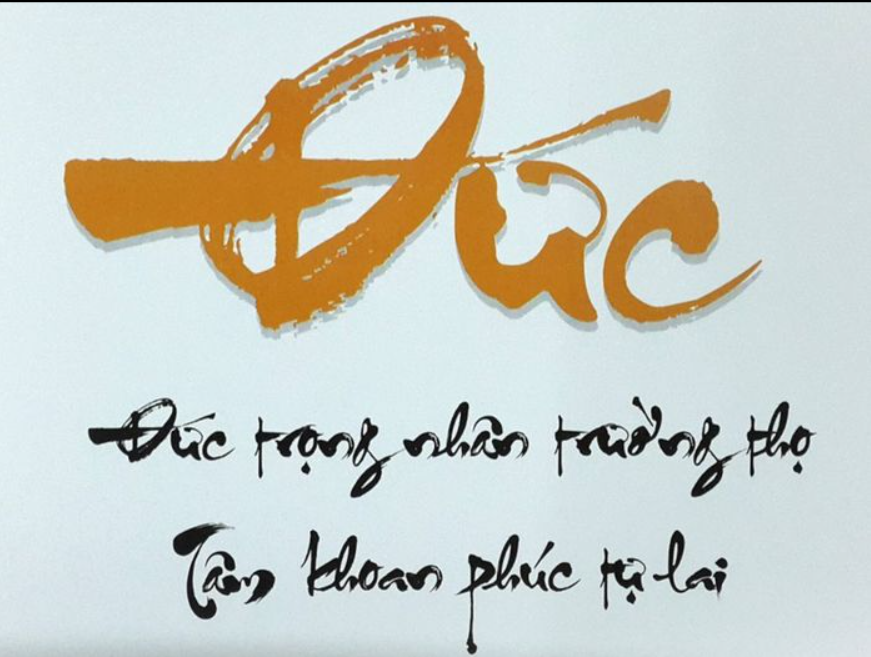 Đức
Đức trọng nhân trường thọ
Tâm khoan phúc tự lai